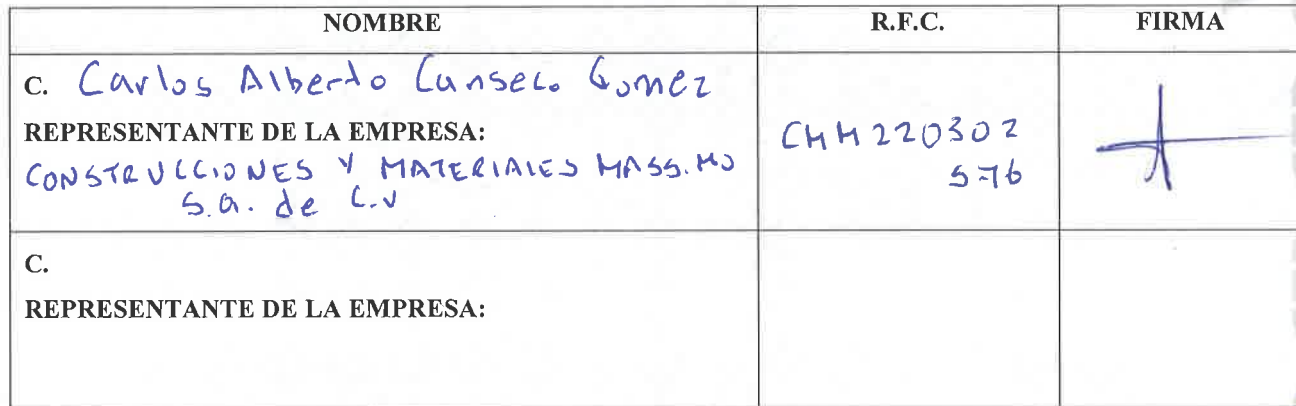 NOMBRE R.F.C. FIRMA
C. Carlos Alberto Canseco Gomez
REPRESENTANTE DE LA EMPRESA:
CONSTRUCCIONES Y MATERIALES MASSIMO
S.a. de C.V
CMM220302
S76
C.
REPRESENTANTE DE LA EMPRESA: